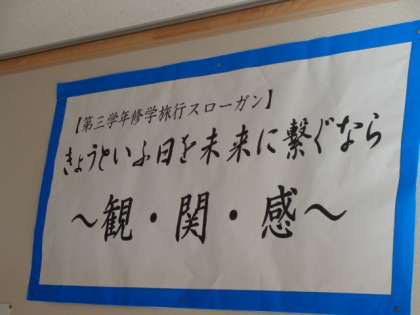 【第三学年修学旅行スローガン】
きょうという日を未来に繋ぐなら
～観・関・感～